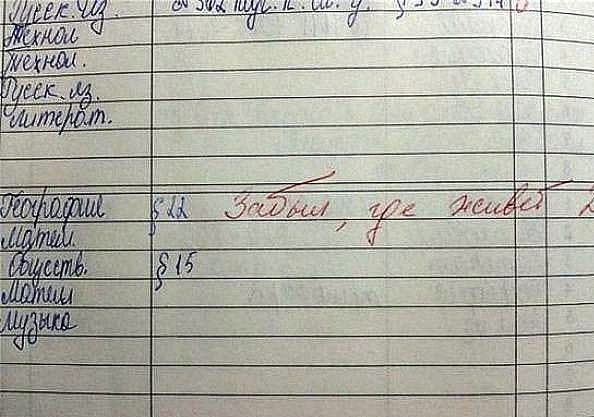 Русск. яз. № 302 § 35
Технол
Технол.
Русск. яз.
Литерат.
География § 22 Забыл, где живёт 2
Матем
Обществ. § 15
Матем
Музыка